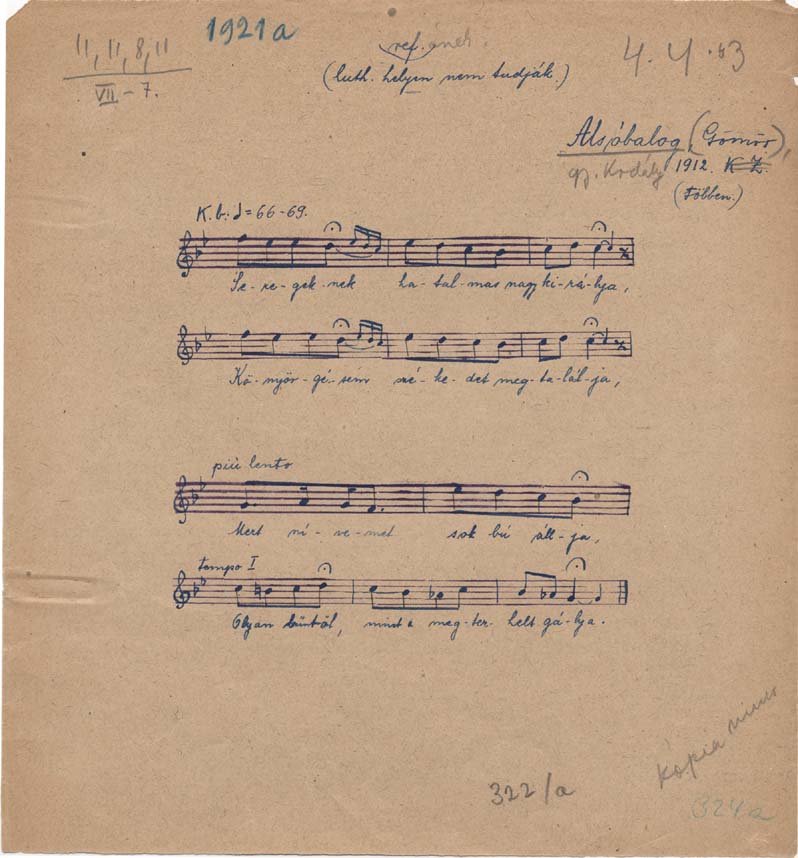 11, 11, 8, 11
VII - 7.
1921a
ref. ének.
(luth. helyen nem tudják.)
4. 4. 53
Alsóbalog, (Gömör),
gy. Kodály 1912. K Z.
(többen.)
K.b: ♩=66-69.
Se-re-gek-nek ha-tal-mas nagy ki-rá-lya,
Kö-nyör-gé-sem szé-ke-det meg-ta-lál-ja,
piú lento
Mert ní-ve-met sok bú áll-ja,
tempo I
Olyan bűntől, mint a meg-ter-helt gá-lya.
kópia nincs
322/a
324a